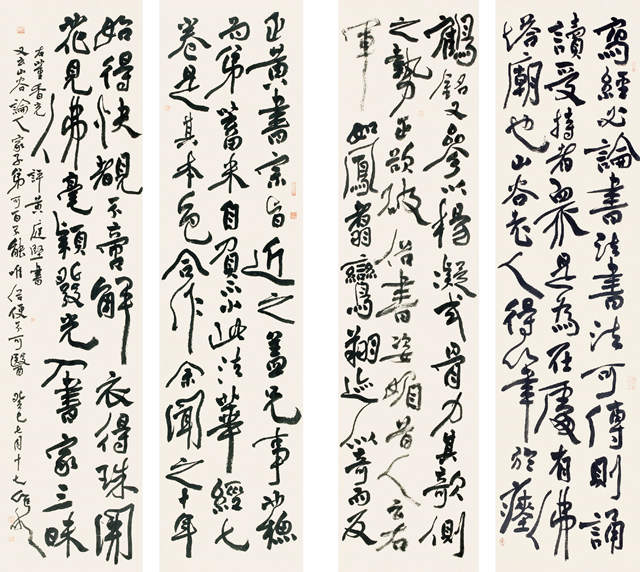 寫經必論書法書法可傳則誦
讀受持者眾是為在處有佛
塔廟也山谷老人得筆於瘞
鶴銘又參以楊凝式骨力其欹側
之勢正欲破俗書姿媚昔人云右
軍如鳳翥鸞翔迹似奇而反
正黃書宗旨近之蓋兄事
為弟蓄米自負不此法華經七
卷是其本色合作余聞之十年
始得快觀不啻解衣得珠開
花見佛毫穎發光入書家三昧
矣
右董香光評黃庭堅書
又云山谷論人家子弟可百不能唯俗便不可醫 癸巳七月十七